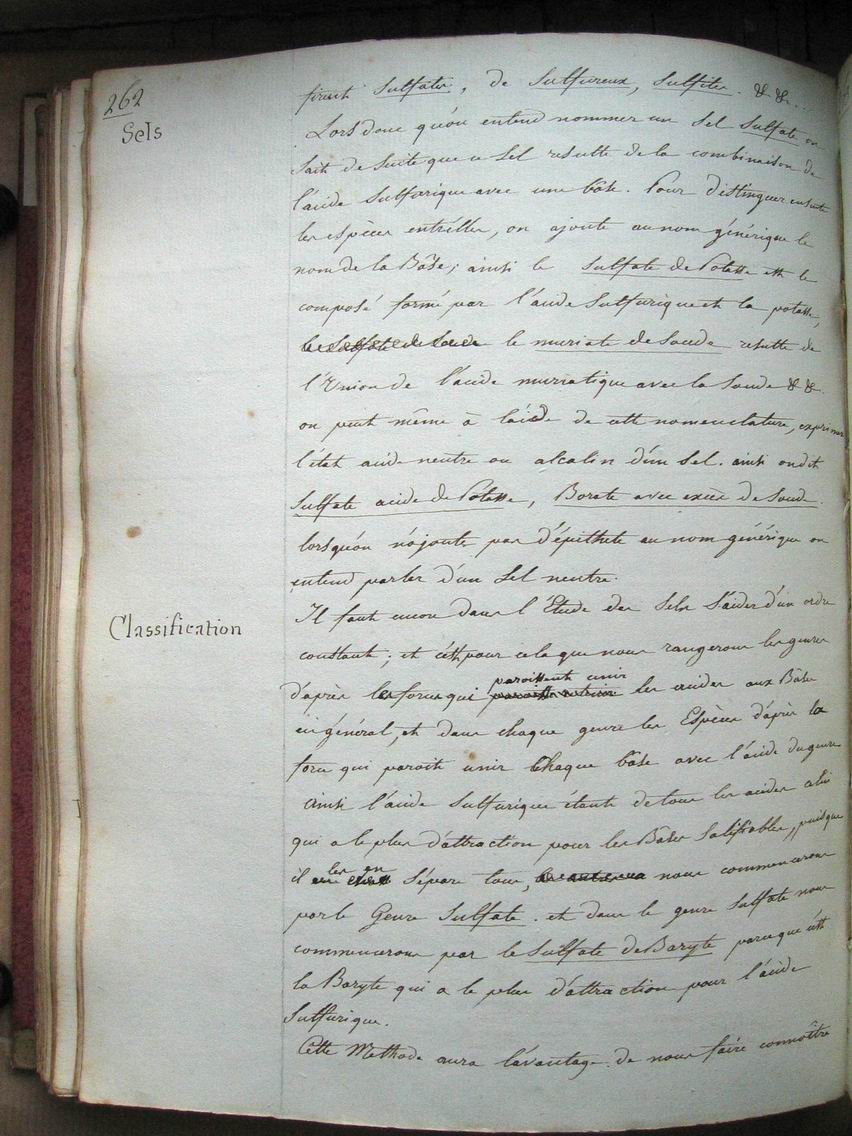 262
Sels
firent Sulfates, de Sulfureux, Sulfites. && ..
Lors donc qu'on entend nommer un Sel Sulfate on
sait de suite que ce Sel resulte de la combinaison de
l'acide Sulfurique avec une bâse. Pour distinguer ensuite
les espèces entr'elles, on ajoute au nom générique le
nom de la Bâse; ainsi le Sulfate de Potasse est le
composé formé par l'acide Sulfurique et la potasse,
le Sulfate de Soude le muriate de Soude resulte de
l'Union de l'acide muriatique avec la Soude &&.
on peut même à l'aide de cette nomenclature, exprimer
l'état acide neutre ou alcalin d'un Sel. ainsi on dit
Sulfate acide de Potasse, Borate avec excès de Soude.
lorsqu'on n'ajoute pas d'épithete au nom générique on
entend parler d'un Sel neutre.
Classification
Il faut encore dans l'Etude des Sels s'aider d'un ordre
constant; et c'est pour cela que nous rangerons les genres
paroissent unir
d'après les forces qui les acides aux Bâses
en général, et dans chaque genre les Espèces d'après la
force qui paroit unir Chaque bâse avec l'acide du genre
ainsi l'acide Sulfurique étant de tous les acides celui
qui a le plus d'attraction pour les Bâses Salifiables, puisque
les en
il Sépare tous, les autres nous commencerons
par le Genre Sulfate. et dans le genre Sulfate nous
commencerons par le Sulfate de Baryte parceque c'est
la Baryte qui a le plus d'attraction pour l'acide
Sulfurique.
Cette Methode aura l'avantage de nous faire connoître